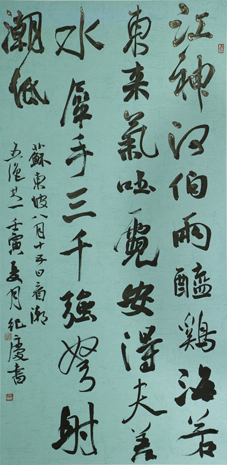 江神河伯两醯鷄海若
東来氣吐霓安得夫差
水犀手三千強弩射
潮低
蘇東坡八月十五日看潮
五絶其一壬寅夏月紀慶書